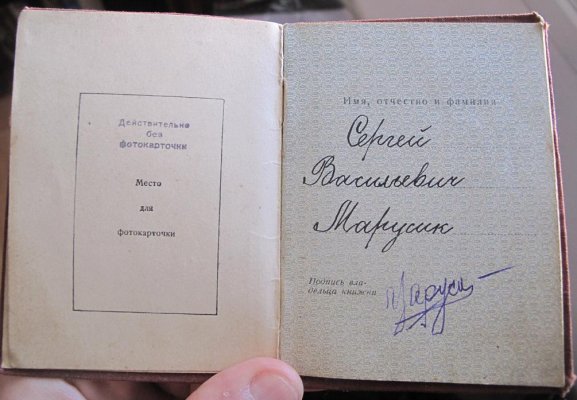 Действительно
без
фотокарточки
Место
для
фотокарточки
Имя, отчество и фамилия
Сергей
Васильевич
Марусик
Подпись вла-
дельца книжки